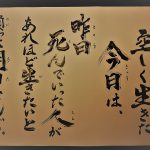 空しく生きた
今日は、
昨日
死んでいった人が
あれほど生きたいと